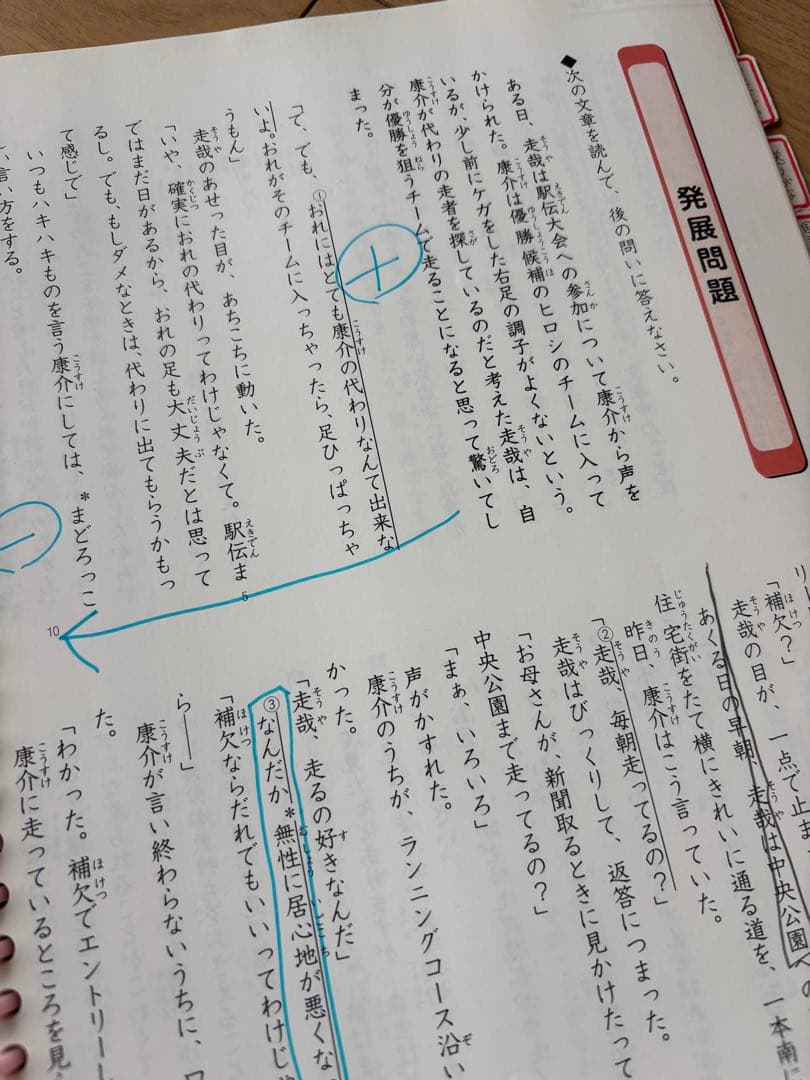 発展問題
◆次の文章を読んで、後の問いに答えなさい。
ある日、走哉は駅伝大会への参加について康介から声を
かけられた。康介は優勝候補のヒロシのチームに入って
いるが、少し前にケガをした右足の調子がよくないという。
康介が代わりの走者を探しているのだと考えた走哉は、自
分が優勝を狙うチームで走ることになると思って驚いてし
まった。
「で、でも、①おれにはとても康介の代わりなんて出来な
いよ。おれがそのチームに入っちゃったら、足ひっぱっちゃ
うもん」
走哉のあせった目が、あちこちに動いた。
「いや、確実におれの代わりってわけじゃなくて。駅伝ま
ではまだ日があるから、おれの足も大丈夫だとは思って
るし。でも、もしダメなときは、代わりに出てもらうかもっ
て感じで」
いつもハキハキものを言う康介にしては、*まどろっこ
い言い方をする。
5
10
「補欠?」
走哉の目が、一点で止ま
あくる日の早朝、走哉は中央公園への
住宅街をたて横にきれいに通る道を、一本南に
昨日、康介はこう言っていた。
「②走哉、毎朝走ってるの?」
走哉はびっくりして、返答につまった。
「お母さんが、新聞取るときに見かけたって
中央公園まで走ってるの?」
「まぁ、いろいろ」
声がかすれた。
康介のうちが、ランニングコース沿い
かった。
「走哉、走るの好きなんだ」
③なんだか*無性に居心地が悪くな
「補欠ならだれでもいいってわけじゃ
ら――」
康介が言い終わらないうちに、口
た。
「わかった。補欠でエントリーし
康介に走っているところを見